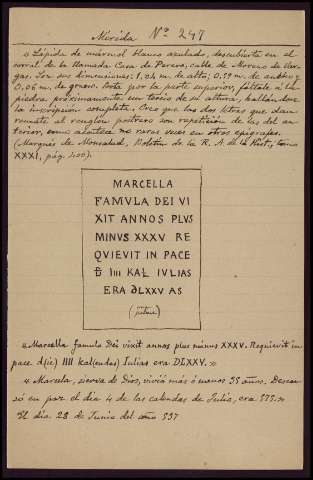 Merida Nº 247
« Lápida de mármol blanco azulado, descubierta en el
corral de la llamada Casa de Pereros, calle de Moreno de Var-
gas. Son sus dimensiones: 1,04 m. de alto, 0,59 m. de ancho y
0,06 m. de grueso. Rota por la parte superior, fáltale á la
piedra próximamente un tercio de su altura, hallándose
la inscripción completa. Creo que las dos letras que dan
remate al renglón postrero son repetición de las del an-
terior, como acontece no raras veces en otros epígrafes.
(Marqués de Monsalud, Boletín de la R. A. de la Hist., tomo
XXXI, pág. 400).
MARCELLA
FAMVLA DEI VI
XIT ANNOS PLVS
MINVS XXXV RE
QVIEVIT IN PACE
Đ IIII KAL IVLIAS
ERA DLXXV AS
« Marcella famula Dei vixit annos plus minus XXXV. Requievit in
pace d(ie) IIII kal(endas) Julias era DLXXV. »
« Marcela, sierva de Dios, vivió más ó menos 35 años. Descan
só en paz el día 4 de las calendas de Julio, era 575. »
El día 28 de Junio del año 537